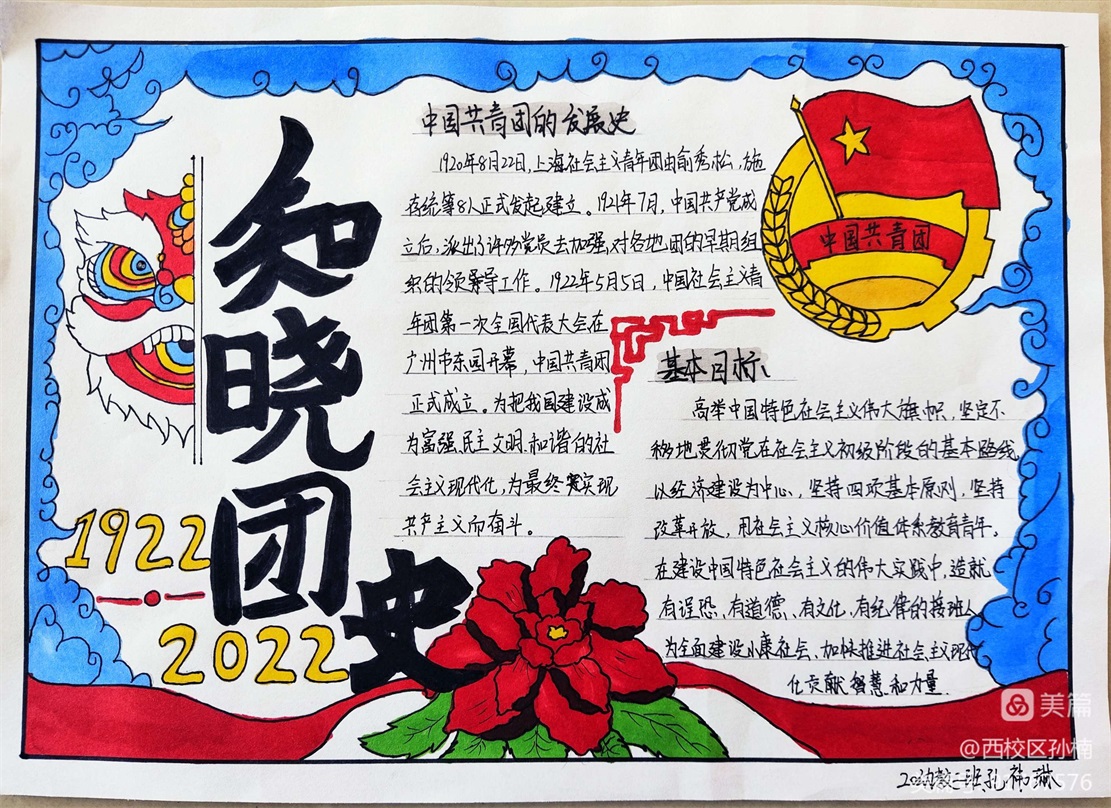 知晓团史
1922
2022
中国共青团的发展史
1920年8月22日,上海社会主义青年团由俞秀松,施
存统等8人正式发起建立。1921年7月,中国共产党成
立后,派出了许多党员去加强,对各地团的早期组
织的领导工作。1922年5月5日,中国社会主义青
年团第一次全国代表大会在
广州市东园开幕,中国共青团
正式成立。为把我国建设成
为富强、民主、文明、和谐的社
会主义现代化,为最终实现
共产主义而奋斗。
中国共青团
基本目标、
高举中国特色社会主义伟大旗帜,坚定不
移地贯彻党在社会主义初级阶段的基本路线
以经济建设为中心,坚持四项基本原则,坚持
改革开放,用社会主义核心价值体系教育青年。
在建设中国特色社会主义的伟大实践中,造就
有理想、有道德、有文化,有纪律的接班人
为全面建设小康社会、加快推进社会主义现代
化贡献智慧和力量.
美篇
@西校区孙楠